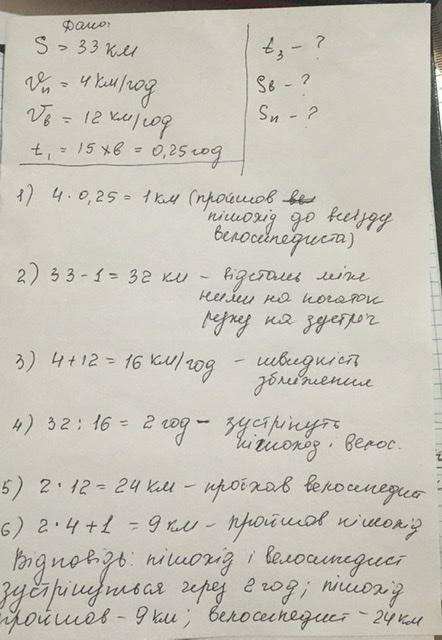 Дано:
S = 33 км
vп = 4 км/год
vв = 12 км/год
t₁ = 15 хв = 0,25 год
tз - ?
Sв - ?
Sп - ?
1) 4 · 0,25 = 1 км (пройшов
пішохід до виїзду
велосипедиста)
2) 33 - 1 = 32 км - відстань між
ними на початок
руху на зустріч
3) 4 + 12 = 16 км/год - швидкість
зближення
4) 32 : 16 = 2 год - зустрінуть
пішоход. велос.
5) 2 · 12 = 24 км - проїхав велосипедист
6) 2 · 4 + 1 = 9 км - пройшов пішохід
Відповідь: пішохід і велосипедист
зустрінуться через 2 год; пішохід
пройшов - 9 км; велосипедист - 24 км